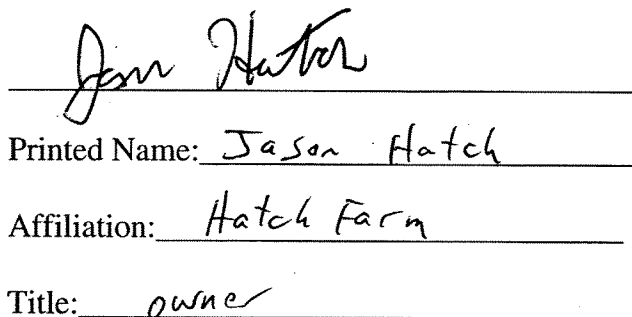 Jason Hatch
Printed Name: Jason Hatch
Affiliation: Hatch Farm
Title: owner